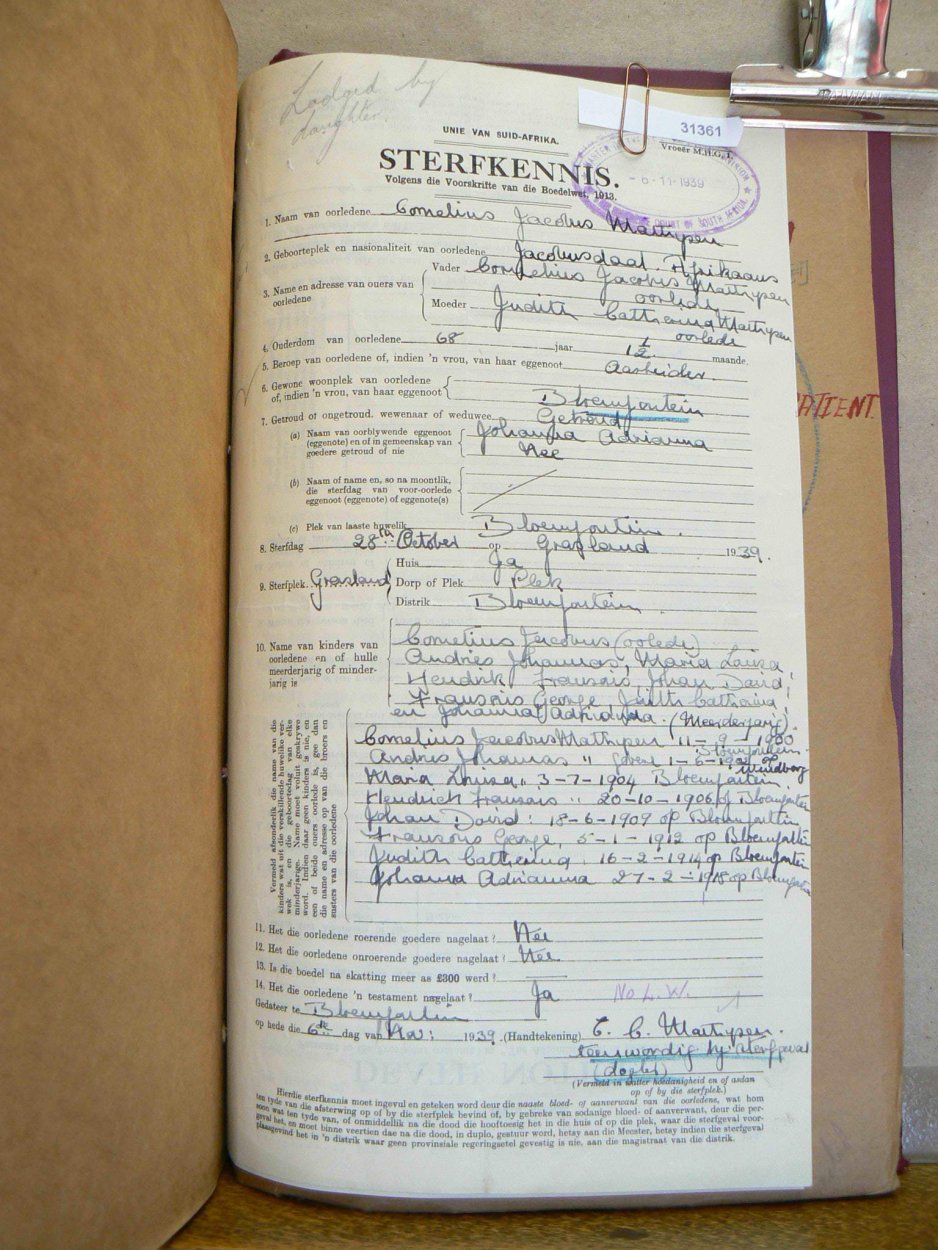 Lodged by
daughter.
31361
UNIE VAN SUID-AFRIKA.
Vroeër M.H.G.
STERFKENNIS.
Volgens die Voorskrifte van die Boedelwet, 1913.
- 6-11-1939
COURT OF SOUTH AFRICA
1. Naam van oorledene Cornelius Jacobus Marthysen
2. Geboorteplek en nasionaliteit van oorledene Jacobusdaal. Afrikaans
3. Name en adresse van ouers van oorledene
Vader Cornelius Jacobus Marthysen
oorlede
Moeder Judith Catherina Marthysen
oorlede
4. Ouderdom van oorledene 68 jaar 1/12 maande.
5. Beroep van oorledene of, indien 'n vrou, van haar eggenoot Aarbeider.
6. Gewone woonplek van oorledene of, indien 'n vrou, van haar eggenoot Bloemfontein
7. Getroud of ongetroud, wewenaar of weduwee Getroud
(a) Naam van oorblywende eggenoot (eggenote) en of in gemeenskap van goedere getroud of nie
Johanna Adrianna
Nee
(b) Naam of name en, so na moontlik, die sterfdag van voor-oorlede eggenoot (eggenote) of eggenote(s)
(c) Plek van laaste huwelik Bloemfontein.
8. Sterfdag 28ste October op Grasland 1939.
9. Sterfplek Grasland
Huis Ja
Dorp of Plek Plek
Distrik Bloemfontein.
10. Name van kinders van oorledene en of hulle meerderjarig of minderjarig is
Cornelius Jacobus (oorlede)
Andries Johannas, Maria Louisa,
Hendrik Fransois, Johan David,
Fransois George, Judith Catherina,
en Johanna Adrianna. (Meerderjarig).
Vermeld afsonderlik die name van die kinders wat uit die verskillende huwelike verwek is, en die geboortedag van elke minderjarige. Name moet voluit geskrywe word. Indien daar geen kinders is nie, en een of beide ouers oorlede is, gee dan die name en adresse op van die broers en susters van die oorledene
Cornelius Jacobus Marthysen 11-9-1900
Bloemfontein
Andries Johannas " Gebore 1-6-190 op
Maria Louisa " 3-7-1904 Bloemfontein
Hendrich Fransois " 20-10-1906 op Bloemfontein
Johan David : 18-6-1909 op Bloemfontein
Fransois George, 5-1-1912 op Bloemfontein
Judith Catherina, 16-2-1914 op Bloemfontein
Johanna Adrianna 27-2-1918 op Bloemfontein
11. Het die oorledene roerende goedere nagelaat? Nee
12. Het die oorledene onroerende goedere nagelaat? Nee
13. Is die boedel na skatting meer as £300 werd?
14. Het die oorledene 'n testament nagelaat? Ja No L.W.
Gedateer te Bloemfontein
op hede die 6de dag van Nov: 1939. (Handtekening) C. C. Marthysen.
teenwoordig by sterfgeval
(dogter)
(Vermeld in watter hoedanigheid en of aldan op of by die sterfplek.)
Hierdie sterfkennis moet ingevul en geteken word deur die naaste bloed- of aanverwant van die oorledene, wat hom
ten tyde van die afsterwing op of by die sterfplek bevind of, by gebreke van sodanige bloed- of aanverwant, deur die per-
soon wat ten tyde van, of onmiddellik na die dood die hooftoesig het in die huis of op die plek, waar die sterfgeval voor-
geval het, en moet binne veertien dae na die dood, in duplo, gestuur word, hetsy aan die Meester, hetsy indien die sterfgeval
plaasgevind het in 'n distrik waar geen provinsiale regeringsetel gevestig is nie, aan die magistraat van die distrik.